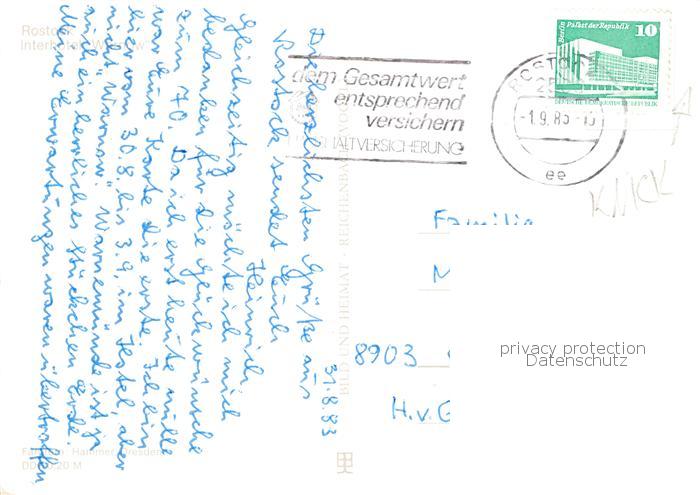 Rostock
Interhotel "Warnow"
31.8.83
Die herzlichsten Grüße aus
Rostock sendet Euch
Heinrich
Gleichzeitig möchte ich mich
bedanken für die Glückwünsche
zum 70. Da ich erst heute
war Eure Karte die erste. Ich bin
hier vom 30.8. bis 3.9. im Hotel, aber
nicht "Warnow". Warnemünde ist ja
auch ein herrliches Stückchen Erde.
Meine Erwartungen waren übertroffen
Foto: Hammer, Dresden
BILD UND HEIMAT · REICHENBACH
dem Gesamtwert
entsprechend
versichern
HAUSHALTVERSICHERUNG
ROSTOCK
25
-1.9.83
ee
Berlin Palast der Republik
10
DEUTSCHE DEMOKRATISCHE REPUBLIK
KNICK
Familie
M
8903
H.v.G
privacy protection
Datenschutz